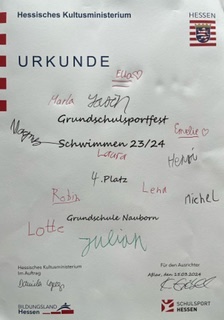 Hessisches Kultusministerium
HESSEN
URKUNDE
Ella
Marla Jason
Grundschulsportfest
Magnus Emelie
Schwimmen 23/24
Laura Henri
4. Platz
Robin Lena
Michel
Grundschule Nauborn
Lotte Julian
Hessisches Kultusministerium
im Auftrag
Für den Ausrichter
Aßlar, den
BILDUNGSLAND
Hessen
SCHULSPORT
HESSEN